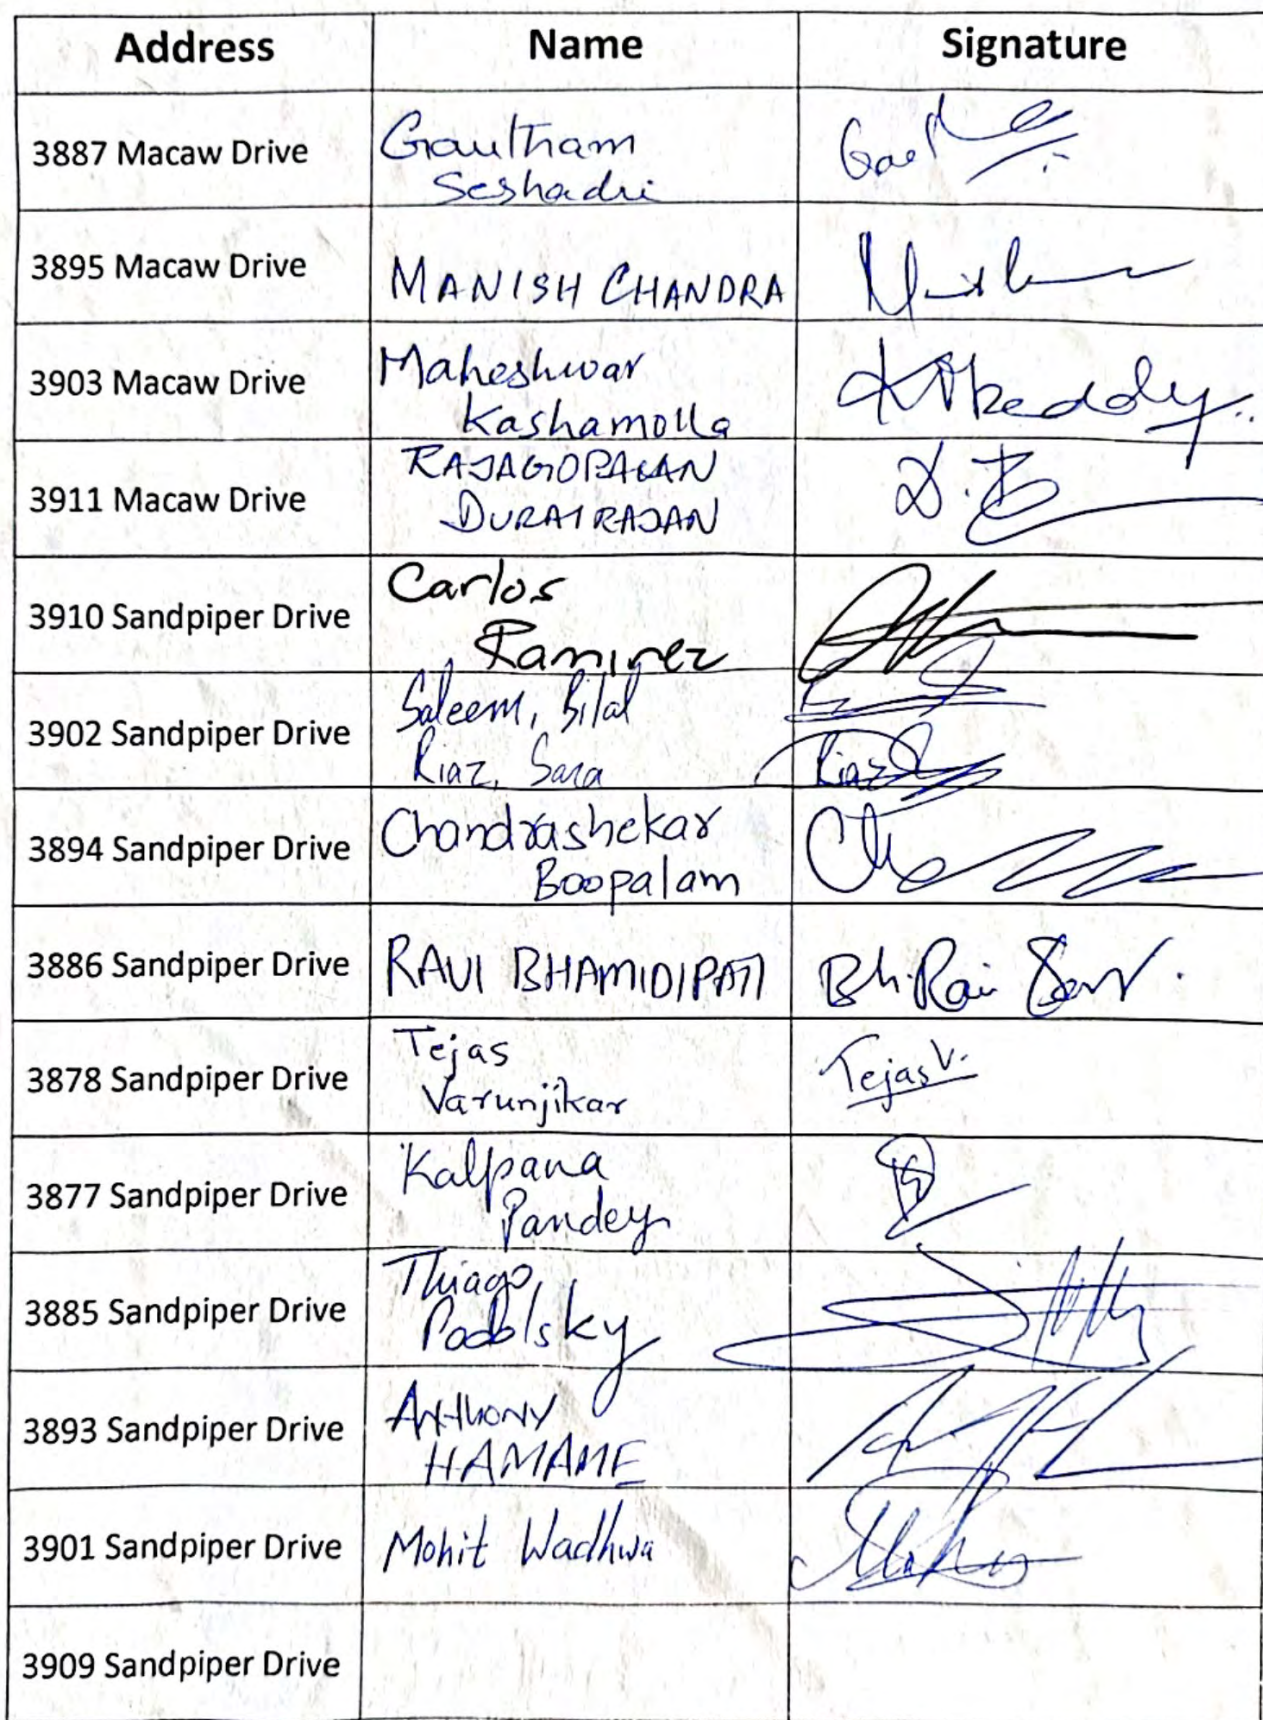 Address Name Signature
3887 Macaw Drive Gautham
Seshadri
3895 Macaw Drive MANISH CHANDRA
3903 Macaw Drive Maheshwar KMReddy
Kashamolla
3911 Macaw Drive RAJAGOPALAN
DURAIRAJAN
3910 Sandpiper Drive Carlos
Ramirez
3902 Sandpiper Drive Saleem, Bilal
Riaz, Sara Riaz
3894 Sandpiper Drive Chandrashekar
Boopalam
3886 Sandpiper Drive RAVI BHAMIDIPATI
3878 Sandpiper Drive Tejas Tejas V.
Varunjikar
3877 Sandpiper Drive Kalpana
Pandey
3885 Sandpiper Drive Thiago
Podolsky
3893 Sandpiper Drive Anthony
HAMAME
3901 Sandpiper Drive Mohit Wadhwa
3909 Sandpiper Drive